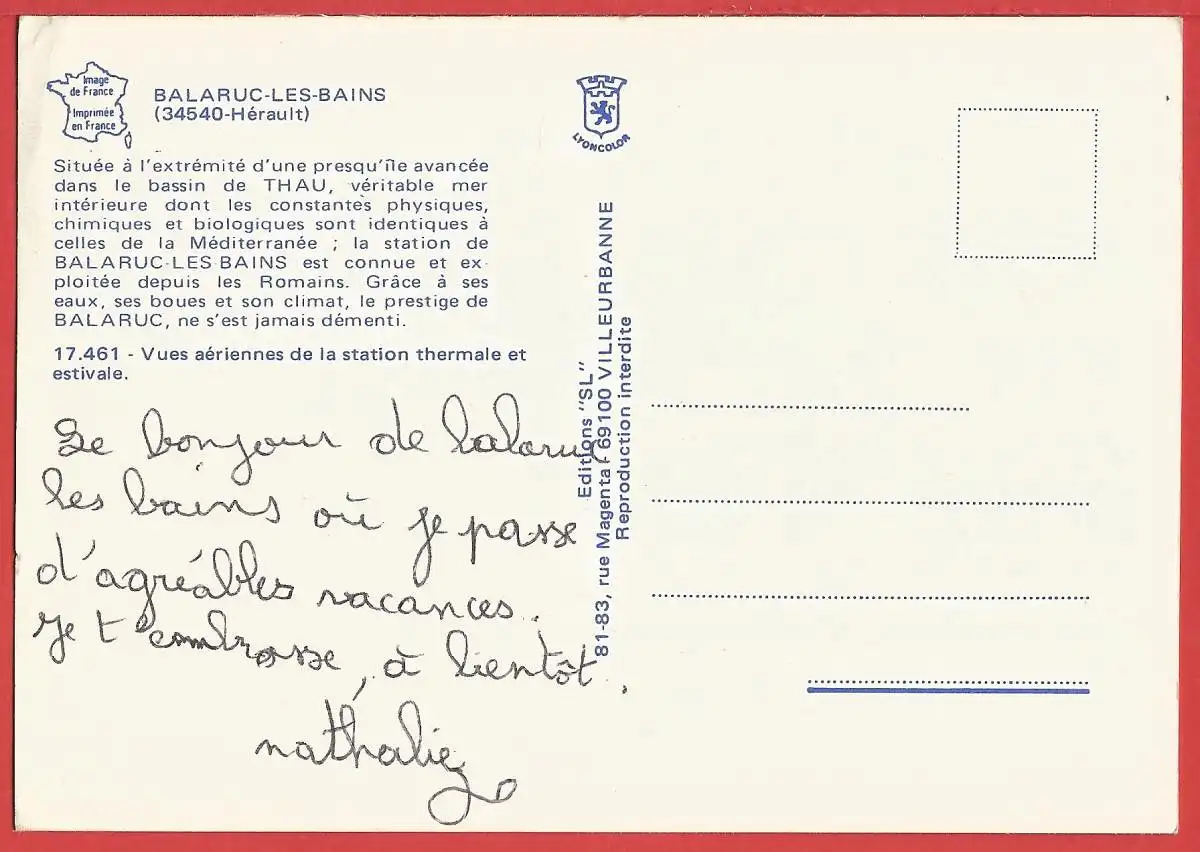 Image
de France
Imprimée
en France
BALARUC-LES-BAINS
(34540-Hérault)
Située à l'extrémité d'une presqu'île avancée
dans le bassin de THAU, véritable mer
intérieure dont les constantes physiques,
chimiques et biologiques sont identiques à
celles de la Méditerranée ; la station de
BALARUC-LES-BAINS est connue et ex-
ploitée depuis les Romains. Grâce à ses
eaux, ses boues et son climat, le prestige de
BALARUC, ne s'est jamais démenti.
17.461 - Vues aériennes de la station thermale et
estivale.
Le bonjour de balaruc
les bains où je passe
d'agréables vacances.
Je t'embrasse, à bientôt.
nathalie
LYONCOLOR
Editions "SL"
81-83, rue Magenta - 69100 VILLEURBANNE
Reproduction interdite